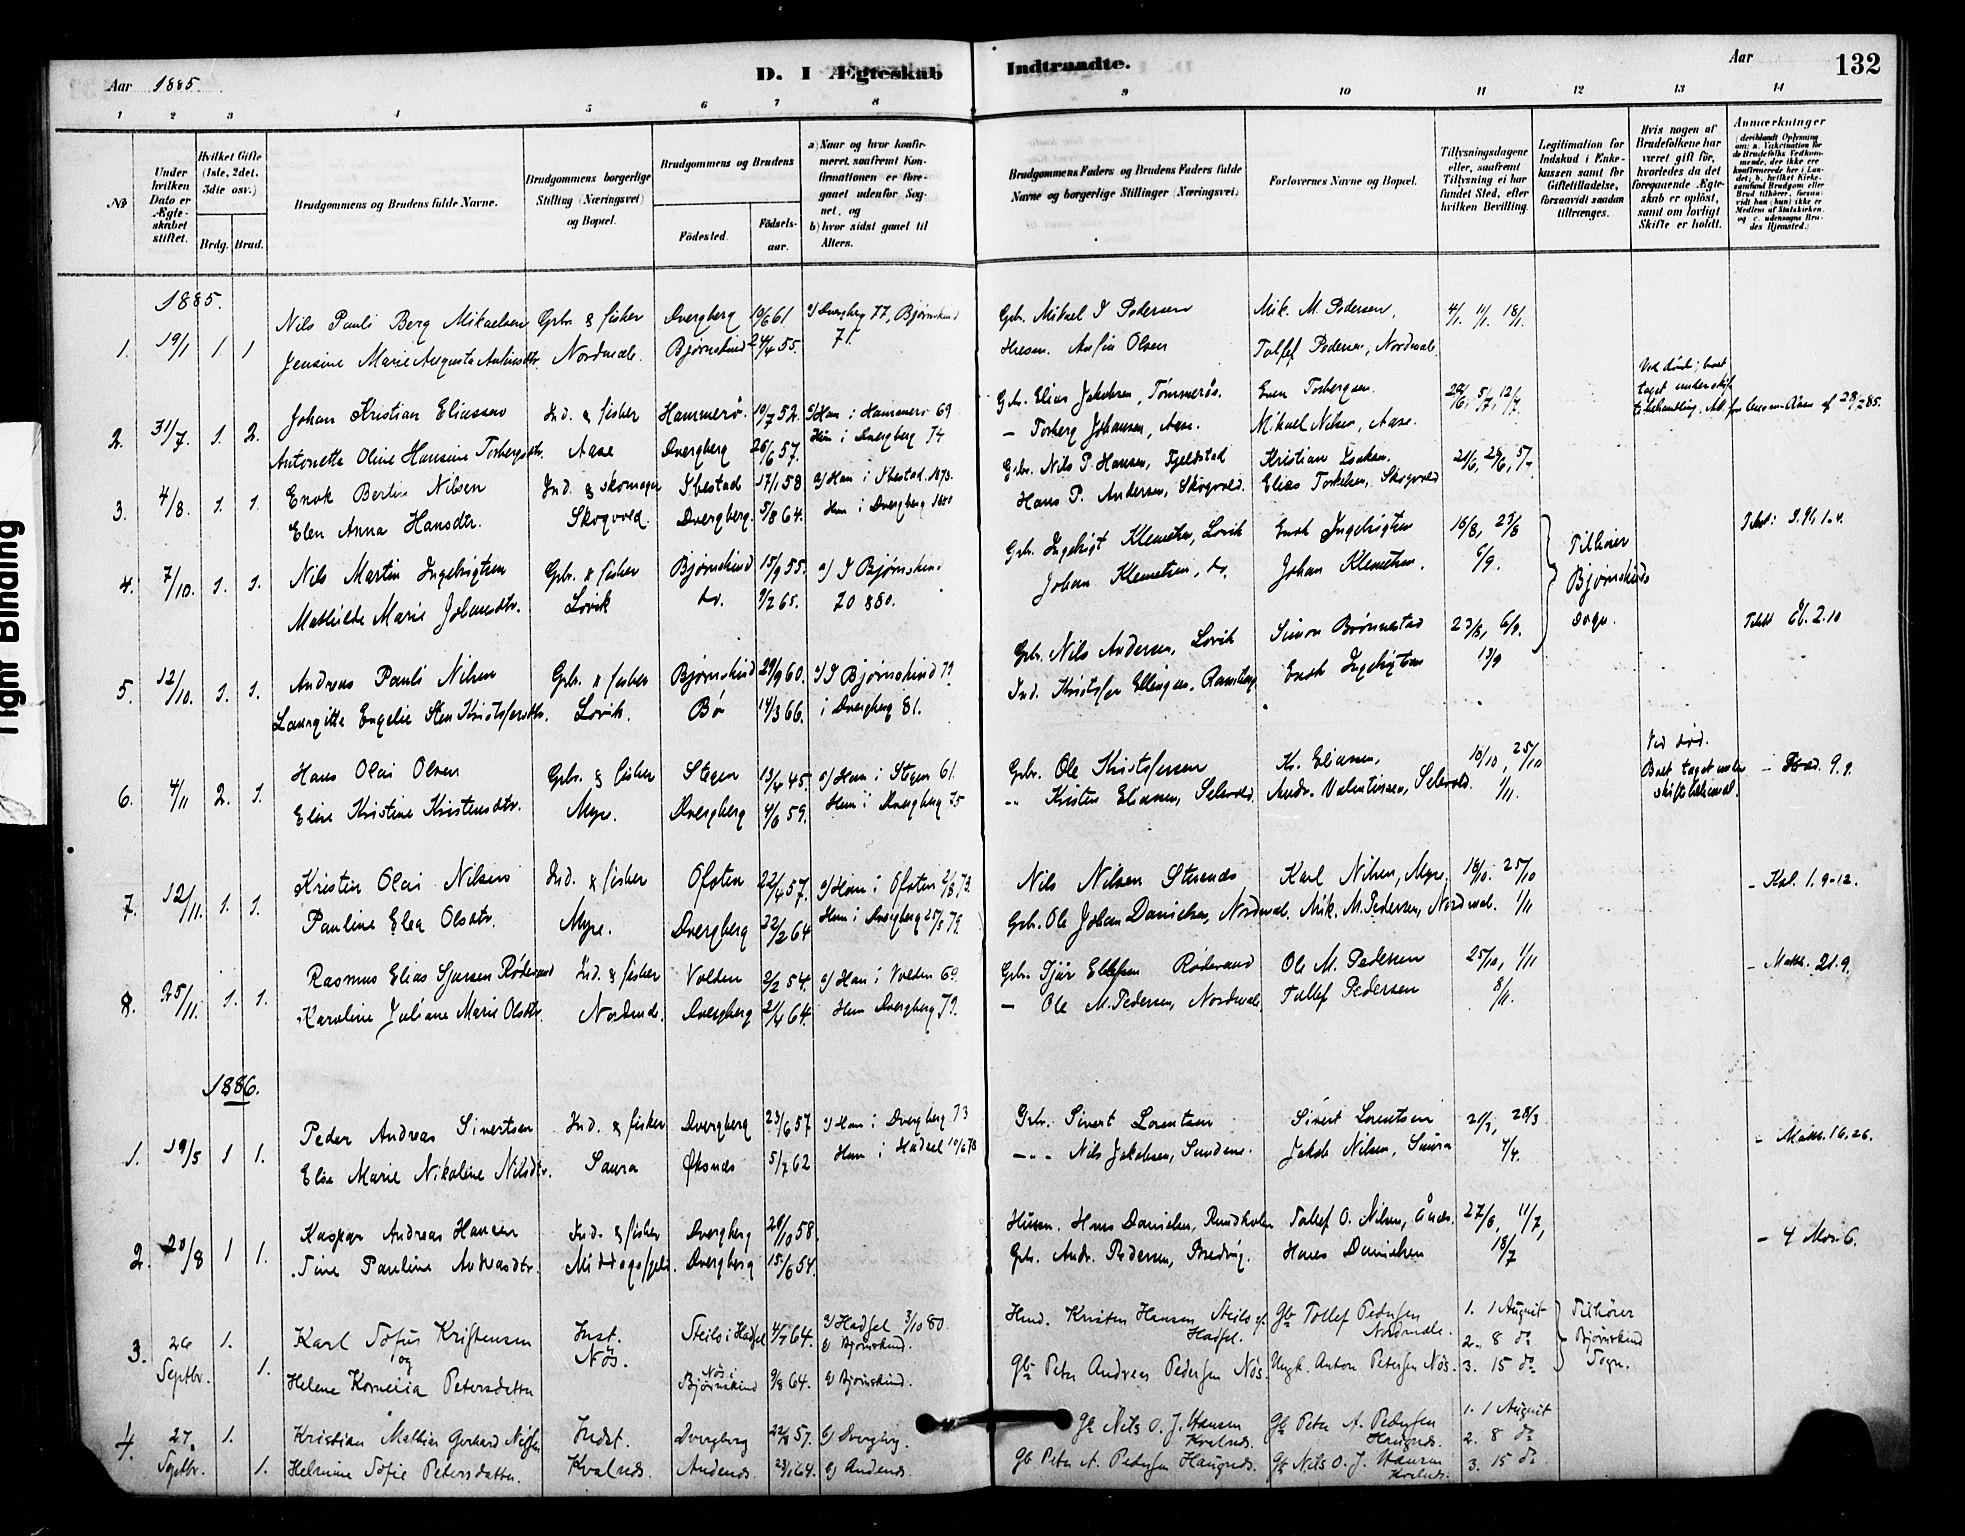 Aar 1885.
D. I Ægteskab
Indtraadte.
Aar
132
1 2 3 4 5 6 7 8 9 10 11 12 13 14
No
Under hvilken Dato er Ægteskabet stiftet.
Hvilket Gifte (1ste, 2det, 3die osv.)
Brdg. Brud.
Brudgommens og Brudens fulde Navne.
Brudgommens borgerlige Stilling (Næringsvei) og Bopæl.
Brudgommens og Brudens
Fødested.
Fødsels-aar.
a) Naar og hvor konfirmeret, saafremt Konfirmationen er foregaaet udenfor Sognet, og
b) hvor sidst gaaet til Alters.
Brudgommens Faders og Brudens Faders fulde Navne og borgerlige Stillinger (Næringsvei)
Forlovernes Navne og Bopæl.
Tillysningsdagene eller, saafremt Tillysning ei har fundet Sted, efter hvilken Bevilling.
Legitimation for Indskud i Enkekassen samt for Giftetilladelse, forsaavidt saadan tiltrænges.
Hvis nogen af Brudefolkene har været gift før, hvorledes da det foregaaende Ægteskab er opløst, samt om lovligt Skifte er holdt.
Anmærkninger
(deriblandt Oplysning om: a. Vakcination for de Brudefolks Vedkommende, der ikke ere konfirmerede her i Landet; b. hvilket Kirkesamfund Brudgom eller Brud tilhører, forsaavidt han (hun) ikke er Medlem af Statskirken, og c. udensogns Brudes Hjemsted.)
1885.
Nils Pauli Berg Mikaelsen Gbr. & fisher Dvergberg 10/6 61. a) Dvergberg 77, Bjørnskind Gbr. Mikael Pedersen Mik. M. Pedersen, 4/1. 11/1. 18/1.
1. 19/1 1 1 Jensine Marie Augusta Antinsdtr. Nordmæle. Bjørnskind 24/4 55. 71. Husm. Ansin Olsen Tollef Pedersen, Nordmæle
Johan Kristian Eliassen Ind. & fisher Hammerø. 10/7 52. a) Han i Hammerø 69 Gbr. Elias Jakobsen, Tømmerås. Even Torbergsen. 28/6, 5/7, 12/7.
2. 31/7. 1. 2. Antonette Oline Hansine Torbergsdtr. Aase Dvergberg 26/6 57. Hun i Dvergberg 74 – Torberg Johansen, Aase. Mikael Nilsen, Aase.
Enok Bertin Nilsen Ind. & skomager Ibestad 17/1 58 a) Han i Ibestad 1873. Gbr. Nils P. Hansen, Fjeldstad Kristian 21/6, 28/6, 5/7
3. 4/8. 1. 1. Elen Anna Hansdtr. Skogvold. Dvergberg. 5/8 64. Hun i Dvergberg 1880 Hans P. Andersen, Skogvold. Elias Torkelsen, Skogvold
Nils Martin Ingebrigtsen Gbr. & fisher Bjørnskind 15/9 55. a) I Bjørnskind Gbr. Ingebrigt Klemetsen, Lovik Enok Ingebrigtsen 16/8, 23/8 Tilhører
4. 7/10. 1. 1. Mathilde Marie Johansdtr. Lovik do. 9/2 65. 70 & 80. Johan Klemetsen, do. Johan Klemetsen. 6/9. Bjørnskinds Sogn.
Andreas Pauli Nilsen Gbr. & fisher Bjørnskind 29/9 60. a) I Bjørnskind 79. Gbr. Nils Andersen, Lovik Simon Brønnestad 23/8, 6/9.
5. 12/10. 1. 1. Laurgitte Engelie Sten Kristofersdtr. Lovik. Bø 14/3 66. i Dvergberg 81. Ind. Kristofer Ellingsen, Ramsberg Enok Ingebrigtsen 13/9
Hans Olai Olsen Gbr. & fisher Stegen 13/4 45. a) Han i Stegen 61. Gbr. Ole Kristofersen K. Eliassen, 18/10, 25/10 Ved død. Boet taget under skiftebehandl. – 9. 9.
6. 4/11 2. 1. Eline Kristine Kristensdtr. Myre. Dvergberg 4/6 59. Hun i Dvergberg 75 " Kristen Eliassen, Selvold. Andr. Valentinsen, Selvold. 1/11.
Kristen Olai Nilsen Ind. & fisher Ofoten 22/4 57. a) Han i Ofoten 2/8 73. Nils Nilsen Strands Karl Nilsen, Myre. 18/10. 25/10 – Kol. 1. 9-12.
7. 12/11. 1. 1. Pauline Elea Olsdtr. Myre. Dvergberg 22/2 64 Hun i Dvergberg 25/5 79. Gbr. Ole Johan Danielsen, Nordmæl. Mik. M. Pedersen, Nordmæl. 1/11
Rasmus Elias Sjursen Røderand Ind. & fisher Volden 2/2 54. a) Han i Volden 69. Gbr. Sjur Ellefsen Røderand Ole M. Pedersen 25/10, 1/11 – Math. 21. 9.
8. 25/11. 1. 1. Karoline Juliane Marie Olsdtr. Nordmæle. Dvergberg 21/4 64. Hun Dvergberg 79. – Ole M. Pedersen, Nordmæle Tollef Pedersen 8/11.
1886.
Peder Andreas Sivertsen Ind. & fisher Dvergberg 23/6 57 a) Han i Dvergberg 73 Gbr. Sivert Lorentsen Sivert Lorentsen 21/3, 28/3 – Math. 16. 26.
1. 19/5 1 1. Elise Marie Nikoline Nilsdtr. Saura Øksnes 5/7 62 Hun i Hadsel 10/6 78 " Nils Jakobsen, Jakob Nilsen, Saura 4/4.
Kaspar Andreas Hansen Ind. & fisher Dvergberg 28/10 58. Husm. Hans Danielsen, Rundholm Tollef O. Nilsen, Åndes. 27/6, 11/7,
2. 20/8 1 1. Tine Pauline Andreasdtr. Middagsfjeld. Dvergberg 15/6 54. Gbr. Andr. Pedersen, Bredvig. Hans Danielsen 18/7 – 4 Mos. 6.
3. 26 Septbr. 1. Karl Tofus Kristensen Inst. Steilo i Hadsel 4/7 64. a) Hadsel 3/10 80. b) Bjørnskind. Kristen Hansen Steilo af Hadsel. Gbr. Tollef Pedersen Nordmæle. 1. 1 August 2. 8 do Tilhører Bjørnskind Sogn.
1. og Helene Kornelia Petersdatter Nøs. Nøs i Bjørnskind 9/8 64. b) Bjørnskind. Gbr. Peter Andreas Pedersen Nøs. Ungk. Anton Petersen Nøs. 3. 15 do
4. 27. Septbr. 1. Kristian Mathias Gerhard Nilsen Indst. Dvergberg 22/8 57. b) Dvergberg. Gbr. Nils O. J. Hansen Kvalnes. Gbr. Peter A. Pedersen Haugnes. 1. 1 August 2. 8 do
1. Helmine Tofie Petersdatter. Kvalnes. Andenes. 23/1 64. b) Andenes. Gbr. Peter A. Pedersen Haugnes. Gbr. Nils O. J. Hansen Kvalnes. 3. 15 do
Tight Binding